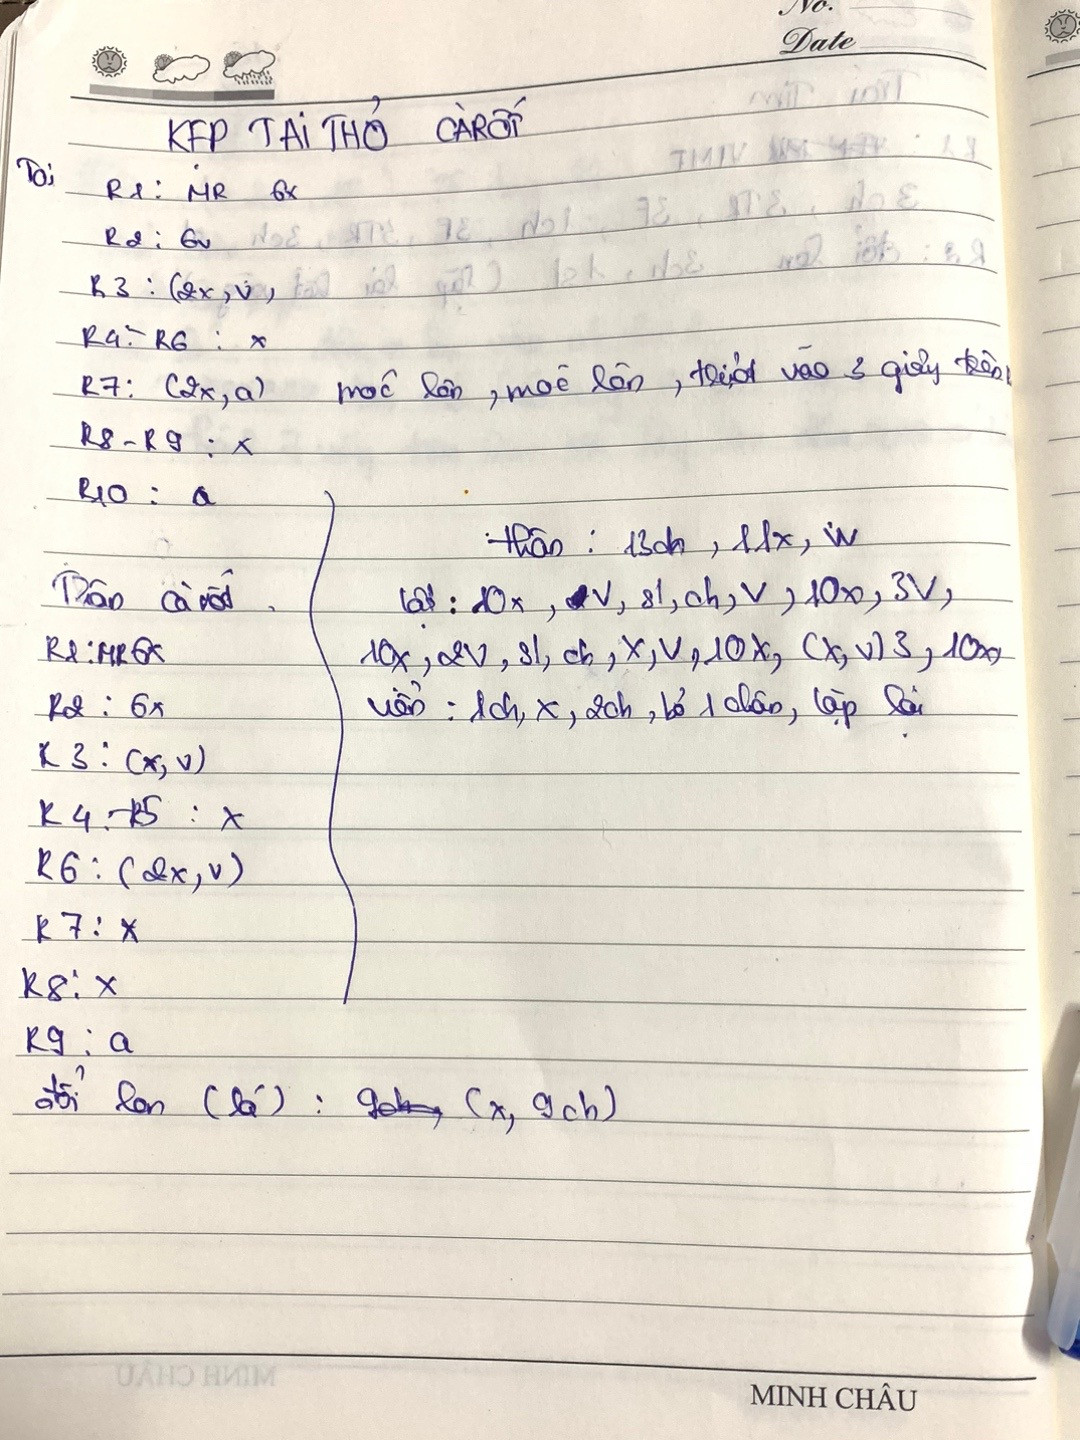 No.
Date
KẸP TAI THỎ CÀRỐT
Tai
R1: MR 6x
R2: 6v
R3: (2x, v,
R4 - R6 : x
R7: (2x, a) móc lên, móc lên, trượt vào 3 giây
R8 - R9 : x
R10 : a
thân : 13ch, 11x, w
lật : 10x, V, sl, ch, V, 10x, 3V,
10x, 2V, sl, ch, x, V, 10x, (x, v) 3, 10x,
viền : 1ch, x, 2ch, bỏ 1 chân, lặp lại
Thân cà rốt.
R1: MR 6x
R2 : 6x
R3 : (x, v)
R4 - R5 : x
R6 : (2x, v)
R7 : x
R8 : x
R9 : a
đổi len (lá) : 9ch, (x, 9ch)
MINH CHÂU